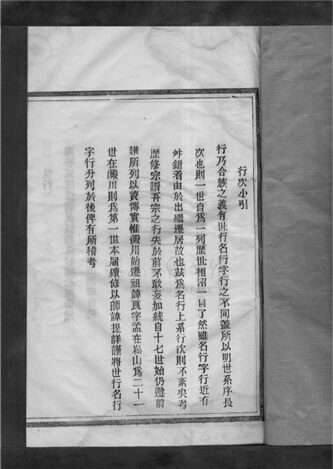 行次小引
行乃合族之義有世行名行字行之不同蓋所以明世系序長
次也則一世自爲一列歷世相沿一目了然雖名行字行近有
舛錯者由於出繼遷居故也茲爲名行上系行次則不紊矣考
歷修宗譜吾宗之行失於前不敢妄加統自十七世始仍遵前
譜所列以資傳實惟 川始遷祖諱良字孟在 山爲二十一
世在 川則爲第一世本屆續修以師諱提詳謹將世行名行
字行分列於後俾有所稽考